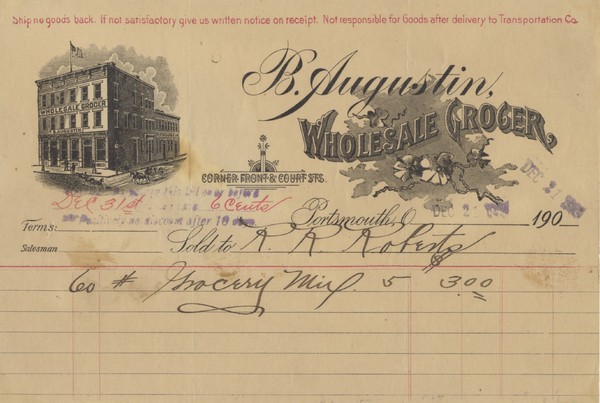 Ship no goods back. If not satisfactory give us written notice on receipt. Not responsible for Goods after delivery to Transportation Co.
WHOLESALE GROCER
B. Augustin,
WHOLESALE GROCER,
CORNER FRONT & COURT STS.
DEC 21
Dec 31st 6 Cents
Positively no discount after 10 days
Portsmouth, O DEC 21 190
Terms:
Salesman
Sold to R. R. Roberts
60 # Grocery 5 $3.00